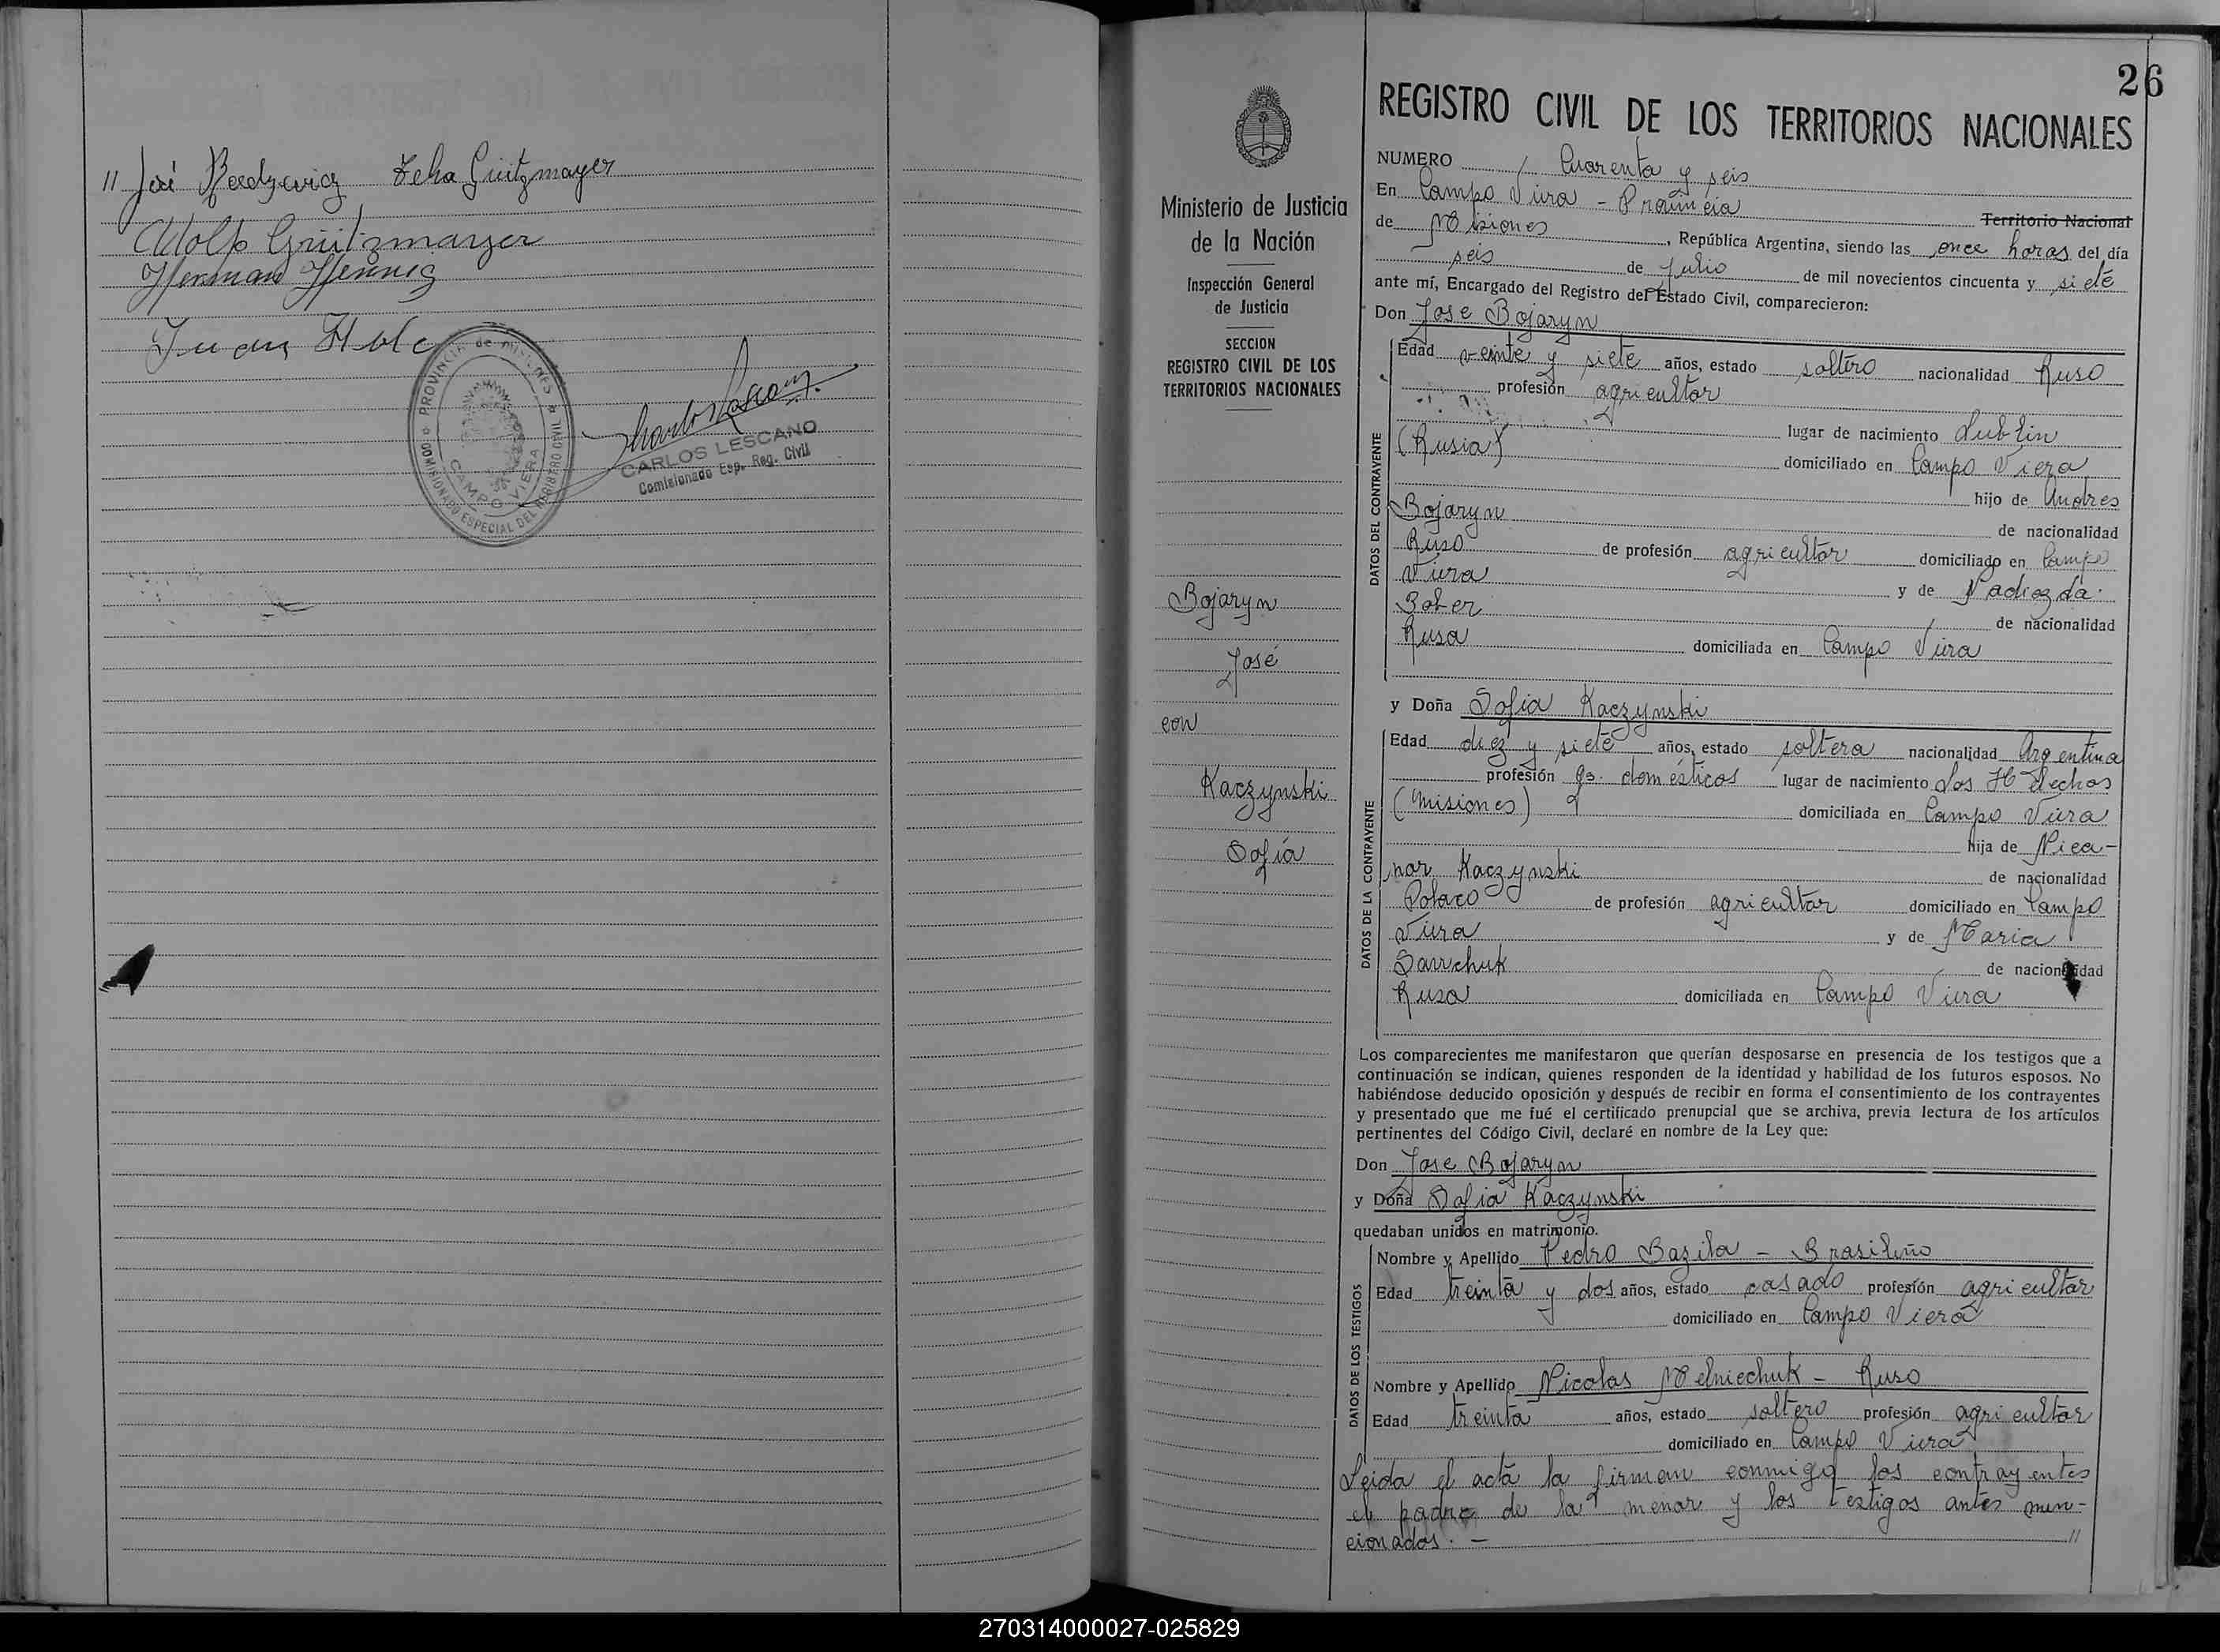 // José Federico Gützmayer
Adolfo Grützmayer
Herman Hennig
Juan
PROVINCIA de MISIONES
COMISIONADO ESPECIAL DEL REGISTRO CIVIL
CAMPO VIERA
CARLOS LESCANO
Comisionado Esp. Reg. Civil
26
Ministerio de Justicia
de la Nación
Inspección General
de Justicia
SECCION
REGISTRO CIVIL DE LOS
TERRITORIOS NACIONALES
Bojaryn
José
con
Kaczynski
Sofía
REGISTRO CIVIL DE LOS TERRITORIOS NACIONALES
NUMERO Cuarenta y seis
En Campo Viera - Provincia Territorio Nacional
de Misiones, República Argentina, siendo las once horas del día
seis de julio de mil novecientos cincuenta y siete
ante mí, Encargado del Registro del Estado Civil, comparecieron:
Don Jose Bojaryn
DATOS DEL CONTRAYENTE
Edad veinte y siete años, estado soltero nacionalidad Ruso
profesión agricultor
lugar de nacimiento Lublin
(Rusia) domiciliado en Campo Viera
hijo de Andres
Bojaryn de nacionalidad
Ruso de profesión agricultor domiciliado en Campo
Viera y de Nadiezda
Bober de nacionalidad
Rusa domiciliada en Campo Viera
y Doña Sofia Kaczynski
DATOS DE LA CONTRAYENTE
Edad diez y siete años, estado soltera nacionalidad Argentina
profesión qs. domésticos lugar de nacimiento Los Helechos
(Misiones) domiciliada en Campo Viera
hija de Nica-
nor Kaczynski de nacionalidad
Polaco de profesión agricultor domiciliado en Campo
Viera y de Maria
Savchuk de nacionalidad
Rusa domiciliada en Campo Viera
Los comparecientes me manifestaron que querían desposarse en presencia de los testigos que a
continuación se indican, quienes responden de la identidad y habilidad de los futuros esposos. No
habiéndose deducido oposición y después de recibir en forma el consentimiento de los contrayentes
y presentado que me fué el certificado prenupcial que se archiva, previa lectura de los artículos
pertinentes del Código Civil, declaré en nombre de la Ley que:
Don Jose Bojaryn
y Doña Sofia Kaczynski
quedaban unidos en matrimonio.
DATOS DE LOS TESTIGOS
Nombre y Apellido Pedro Bazila - Brasileño
Edad treinta y dos años, estado casado profesión agricultor
domiciliado en Campo Viera
Nombre y Apellido Nicolas Melniechuk - Ruso
Edad treinta años, estado soltero profesión agricultor
domiciliado en Campo Viera
Leida el acta la firman conmigo los contrayentes
el padre de la menor y los testigos antes men-
cionados. - //
270314000027-025829